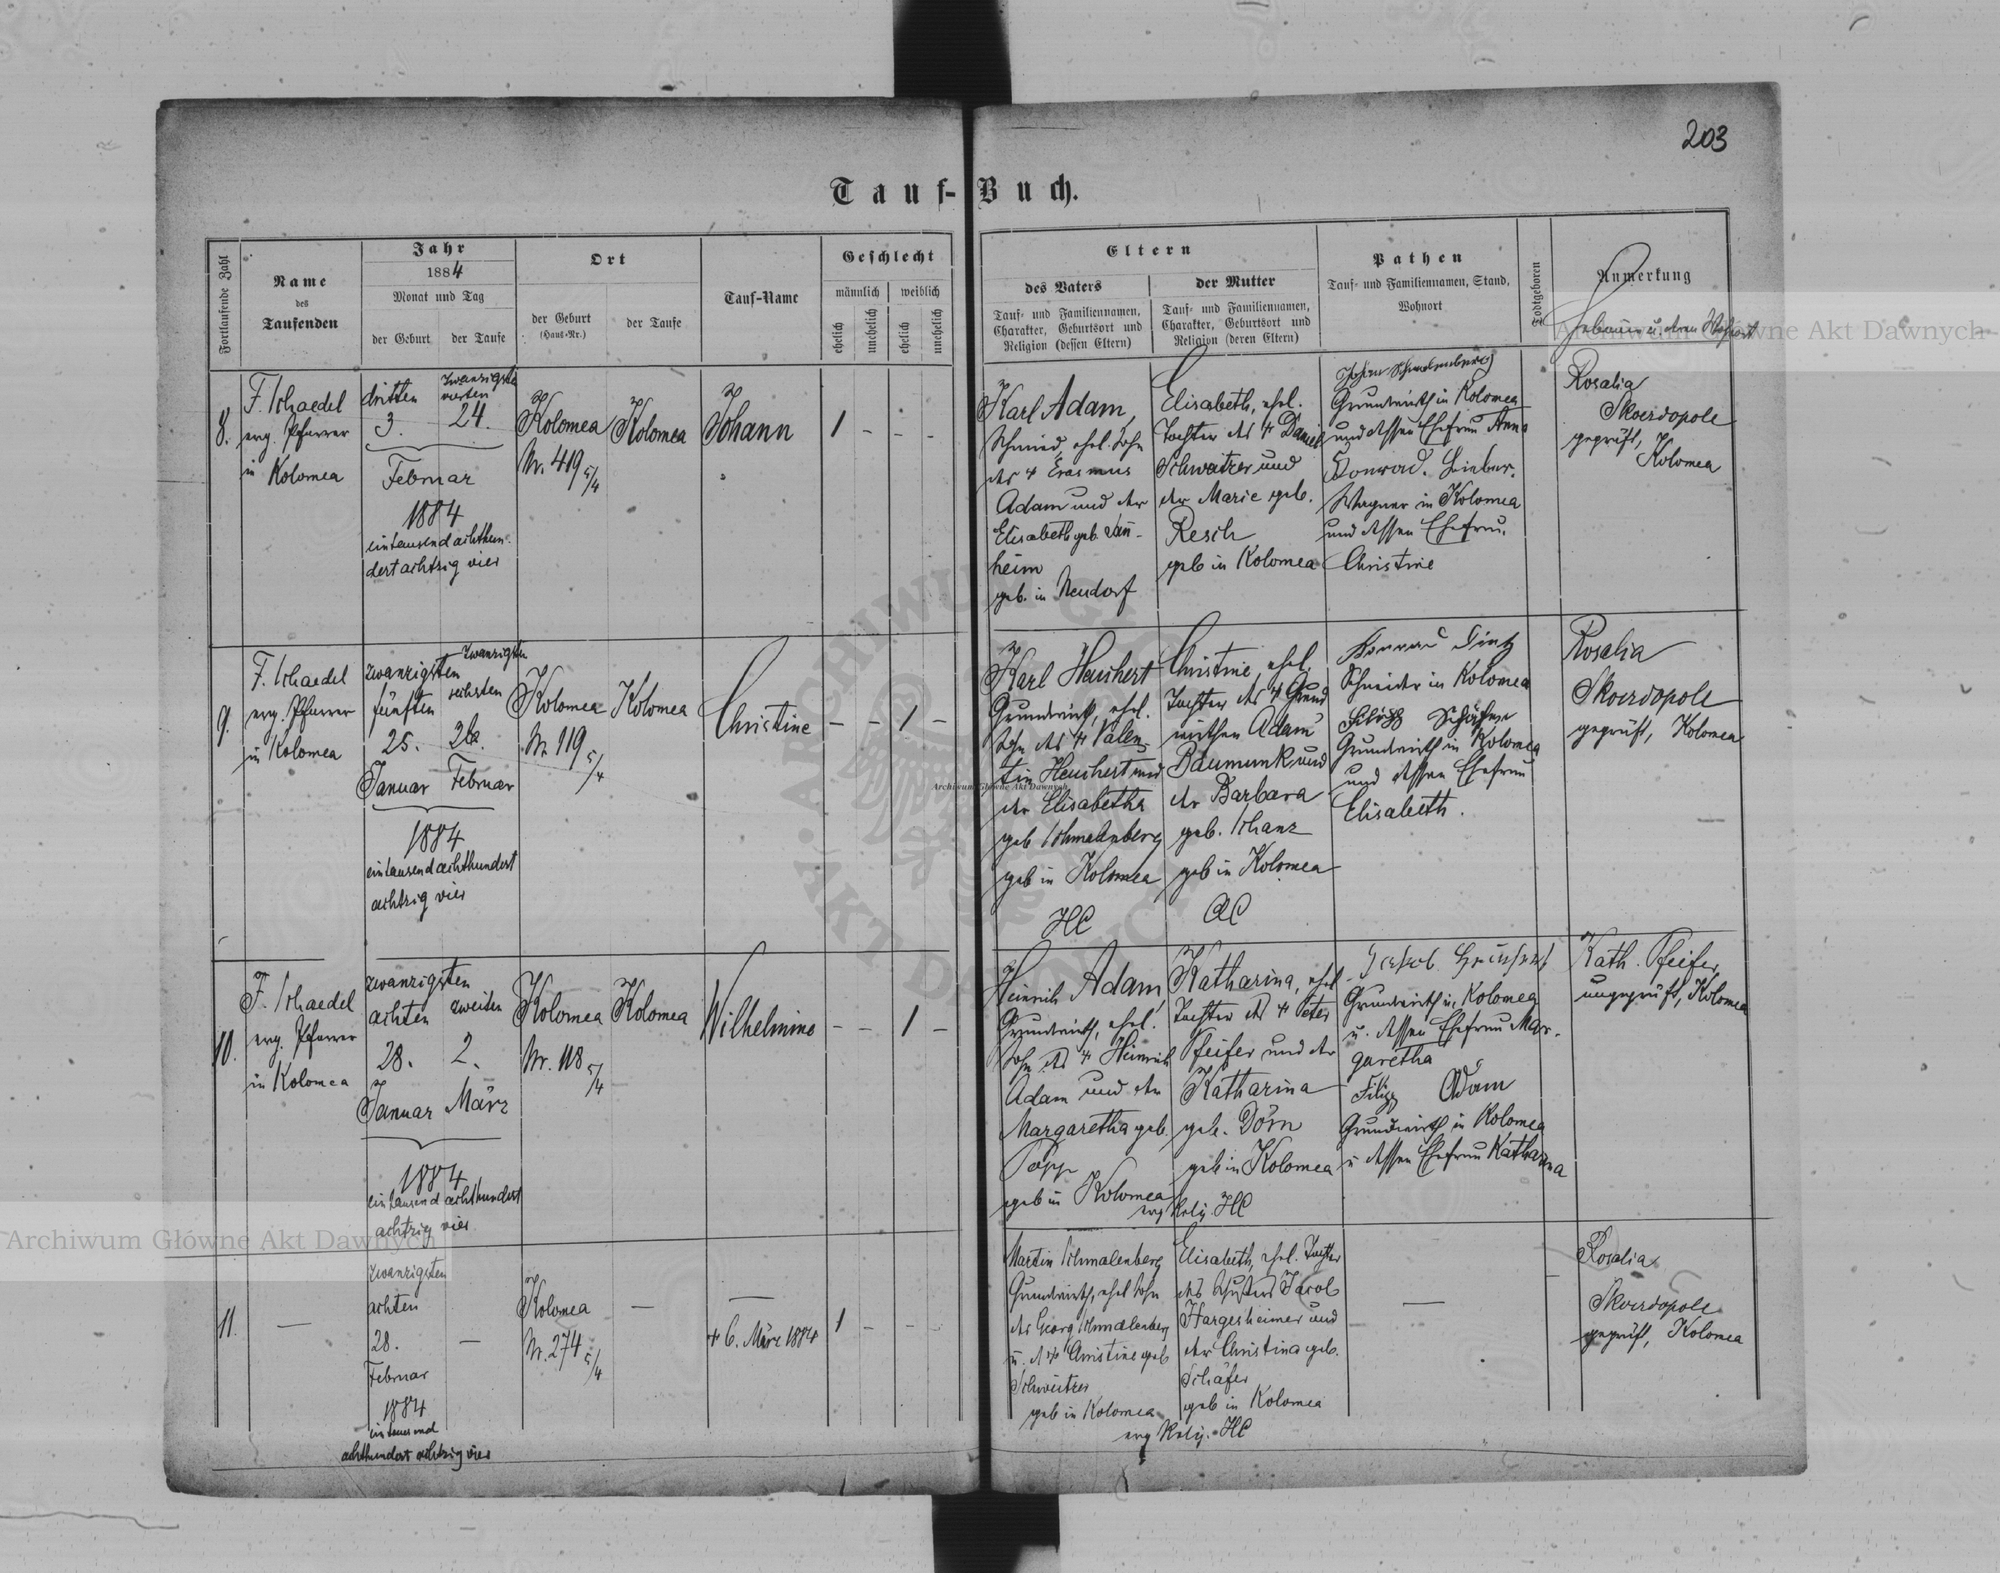 203
Tauf-Buch.
Fortlaufende Zahl
Name
des
Taufenden
Jahr
1884
Monat und Tag
der Geburt
der Taufe
Ort
der Geburt
(Haus-Nr.)
der Taufe
Tauf-Name
Geschlecht
männlich
weiblich
ehelich
unehelich
ehelich
unehelich
Eltern
des Vaters
Tauf- und Familiennamen,
Charakter, Geburtsort und
Religion (dessen Eltern)
der Mutter
Tauf- und Familiennamen,
Charakter, Geburtsort und
Religion (deren Eltern)
Pathen
Tauf- und Familiennamen, Stand,
Wohnort
Todtgeboren
Anmerkung
Hebamme u. deren Wohnort
8.
F. Schaedel
evg. Pfarrer
in Kolomea
dritten
3.
zwanzigsten
vierten
24.
Februar
1884
eintausend achthun-
dert achtzig vier
Kolomea
Nr. 419 5/4
Kolomea
Johann
1 - - -
Karl Adam,
Schmied, ehel. Sohn
des + Erasmus
Adam und der
Elisabeth geb.
heim
geb. in Neudorf
Elisabeth, ehel.
Tochter des + Daniel
Schweitzer und
der Marie geb.
Resch
geb in Kolomea
Johann Schmalenberg
Grundwirth in Kolomea
und dessen Ehefrau Anna
Konrad
Wagner in Kolomea
und dessen Ehefrau
Christine
Rosalia
Skoerdopole
geprüft,
Kolomea
9.
F. Schaedel
evg. Pfarrer
in Kolomea
zwanzigsten
fünften
25.
Januar
zwanzigsten
sechsten
26.
Februar
1884
eintausend achthundert
achtzig vier
Kolomea
Nr. 119 5/4
Kolomea
Christine
- - 1 -
Karl Heuchert
Grundwirth, ehel.
Sohn des + Valen-
tin Heuchert und
der Elisabetha
geb Schmalenberg
geb in Kolomea
HC
Christine, ehel.
Tochter des + Grund
wirthen Adam
Baumunk und
der Barbara
geb. Schanz
geb in Kolomea
AC
Schneider in Kolomea
Grundwirth in Kolomea
und dessen Ehefrau
Elisabeth.
Rosalia
Skoerdopole
geprüft, Kolomea
10.
F. Schaedel
evg. Pfarrer
in Kolomea
zwanzigsten
achten
28.
Januar
zweiten
2.
März
1884
eintausend achthundert
achtzig vier
Kolomea
Nr. 118 5/4
Kolomea
Wilhelmine
- - 1 -
Heinrich Adam,
Grundwirth, ehel.
Sohn des + Heinrich
Adam und der
Margaretha geb.
Popp
geb in Kolomea
Katharina, ehel
Tochter des + Peter
Pfeifer und der
Katharina
geb. Dörn
geb in Kolomea
evg Relig. HC
Jakob
Grundwirth in Kolomea
u. dessen Ehefrau Mar-
garetha
Filipp Adam
Grundwirth in Kolomea
u dessen Ehefrau Katharina
Kath. Pfeifer,
ungeprüft, Kolomea
11.
zwanzigsten
achten
28.
Februar
1884
eintausend
achthundert achtzig vier
Kolomea
Nr. 274 5/4
+ 6. März 1884
1 - - -
Martin Schmalenberg
Grundwirth, ehel Sohn
des Georg Schmalenberg
u. d + Christine geb
Schweitzer
geb in Kolomea
Elisabeth, ehel. Tochter
des Schusters Jacob
Hargesheimer und
der Christina geb.
Schäfer
geb in Kolomea
evg Relig. HC
Rosalia
Skoerdopole
geprüft, Kolomea
Archiwum Główne Akt Dawnych
Archiwum Główne Akt Dawnych
Archiwum Główne Akt Dawnych
ARCHIWUM GŁÓWNE AKT DAWNYCH